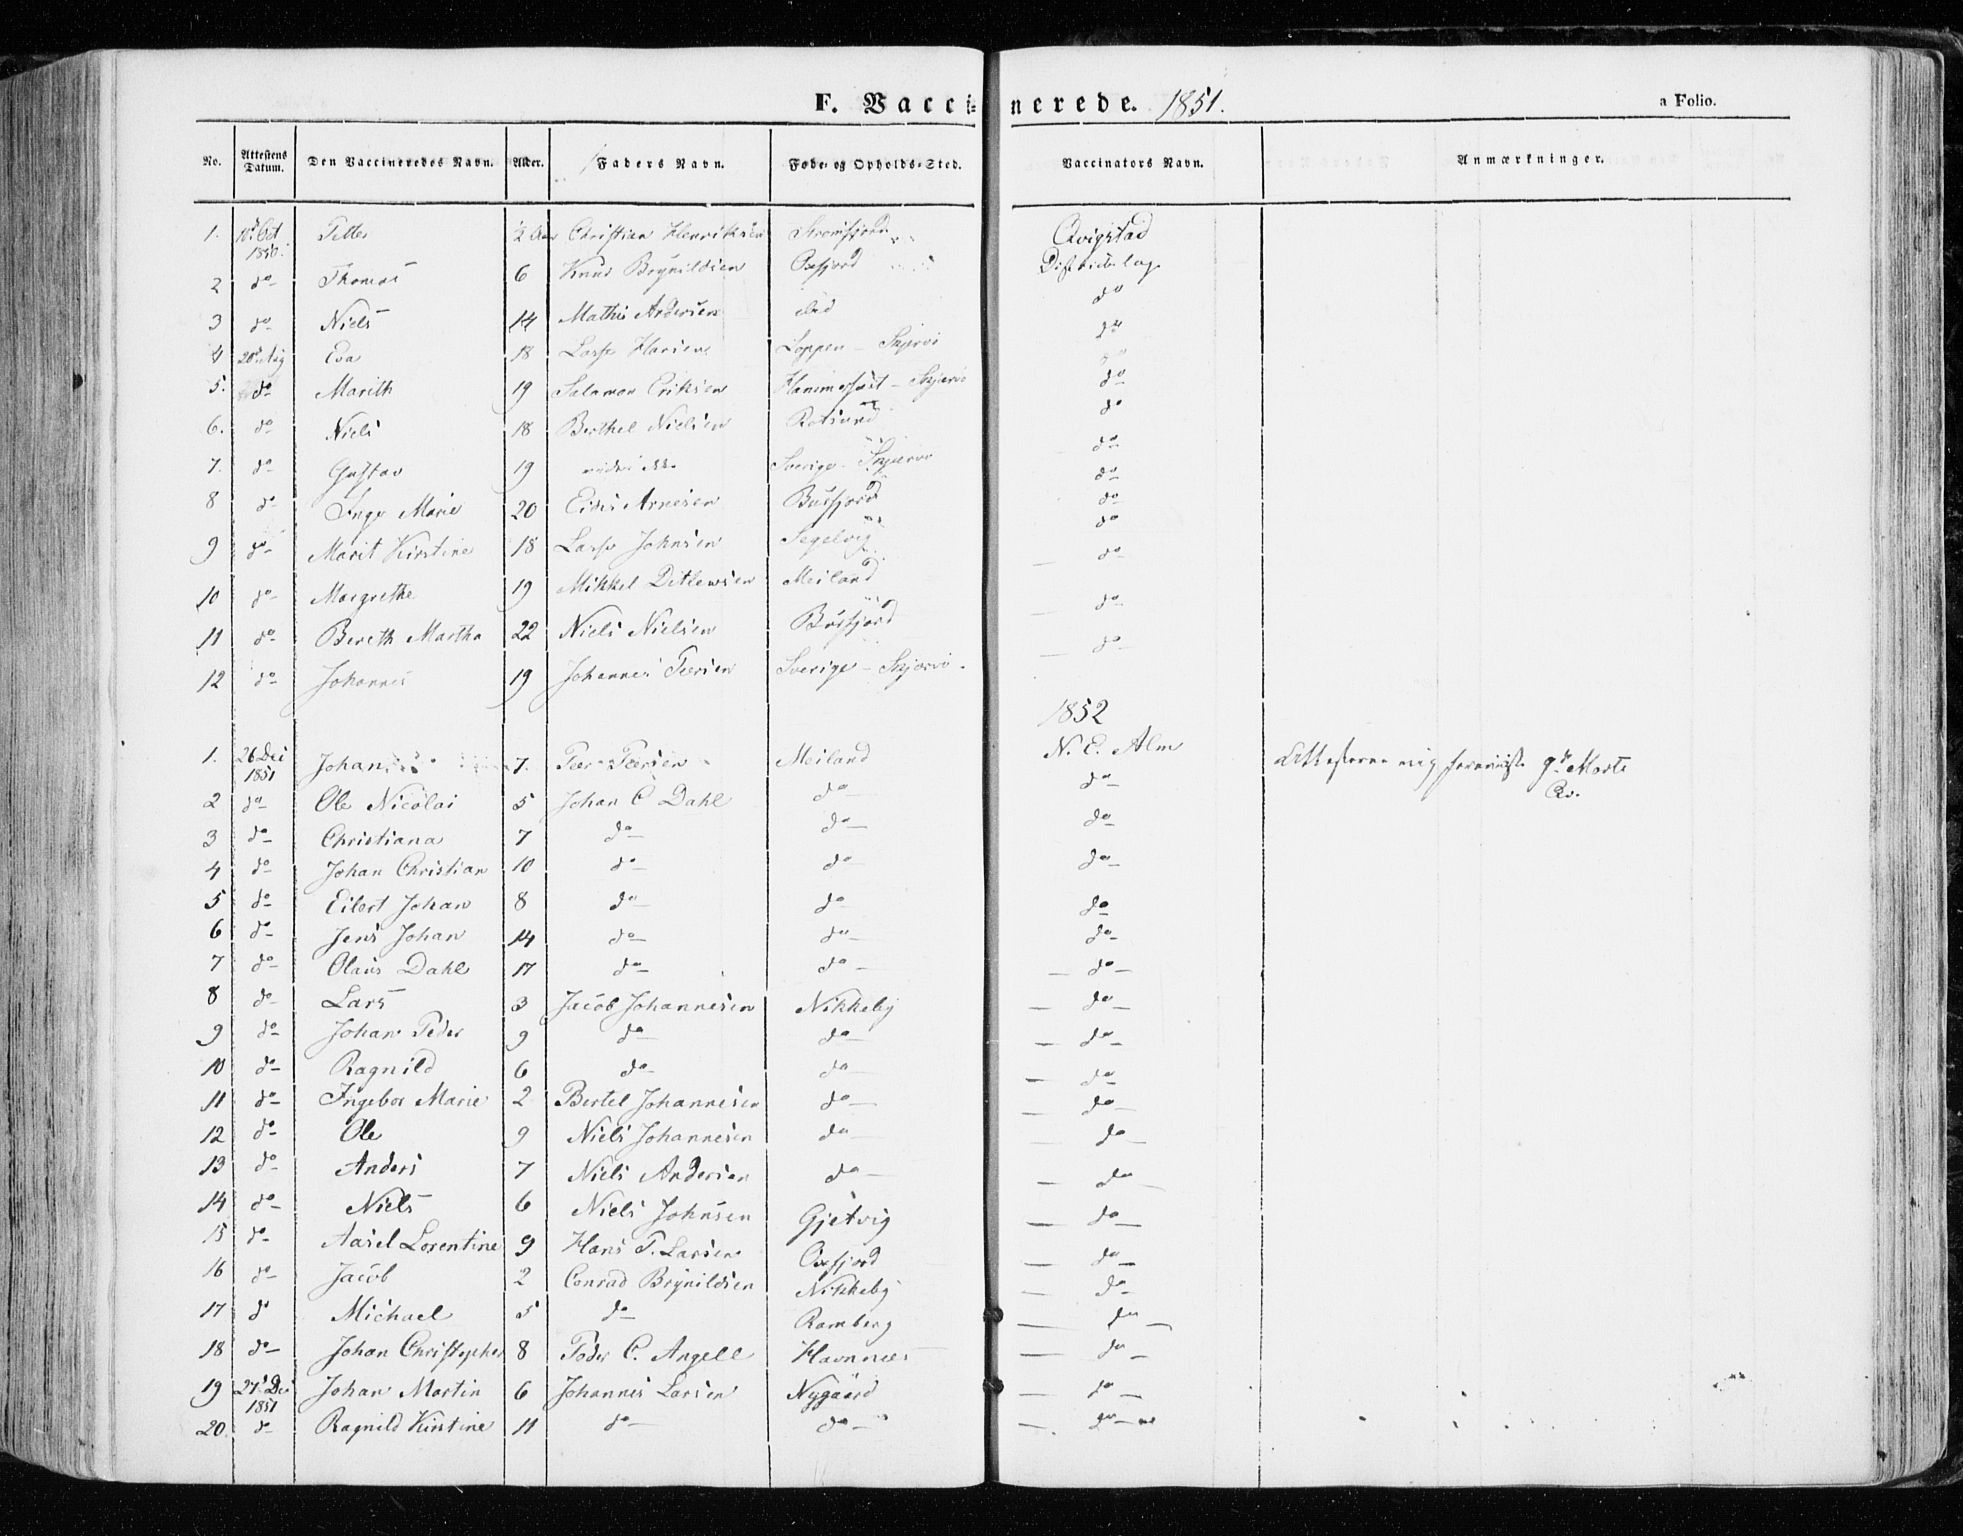 F. Vaccinerede. 1851.
a Folio.
No. Attestens Datum. Den Vaccineredes Navn. Alder. Faders Navn. Føde- og Opholds-Sted. Vaccinators Navn. Anmærkninger.
1. 10d Oct 1850. 2 Aar Christian Henriksen Strømfjord Qvigstad
2 do Thomas 6 Knud Brynildsen Oxfjord Districtslæge
3 do Niels 14 Mathis Andersen ibid do
4 20d Aug Eva 18 Lasse Hansen Loppen - Skjervø do
5. do Marith 19 Salamon Eriksen Hammerfest - Skjervø do
6. do Niels 18 Berthel Nielsen Rotsund do
7. do Gustav 19 vides ikke Sverige - Skjervø do
8 do Inger Marie 20 Arnesen Busfjord do
9 do Marit Kirstine 18 Lasse Johnsen Segelvig do
10 do Margrethe 19 Mikkel Ditlewsen Meiland do
11 do Bereth Martha 22 Niels Nielsen Busfjord do
12 do Johannes 19 Johannes Peersen Sverige - Skjervø do
1852
1. 26 Dec 1851 Johan 7. Peer Peersen Meiland N. C. Alm
2 do Ole Nicolai 5 Johan C Dahl do do
3 do Christiana 7 do do do
4 do Johan Christian 10 do do do
5 do Eilert Johan 8 do do do
6 do Jens Johan 14 do do do
7 do Olaus Dahl 17 do do do
8 do Lars 3 Jacob Johannesen Nikkeby do
9 do Johan Peder 9 do do do
10 do Ragnild 6 do do do
11 do Ingebor Marie 2 Bertel Johannesen do do
12 do Ole 9 Niels Johannesen do do
13 do Anders 7 Niels Andersen do do
14 do Niels 6 Niels Johnsen Gjetvig do
15 do Aasel Lorentine 9 Hans P. Larsen Oxfjord do
16 do Jacob 2 Conrad Brynildsen Nikkeby do
17 do Michael 5 do Ramberg do
18 do Johan Christopher 8 Peder C. Angell Havnnes do
19 27d Dec 1851 Johan Martin 6 Johannes Larsen Nygaard do
20. do Ragnild Kirstine 11 do do do